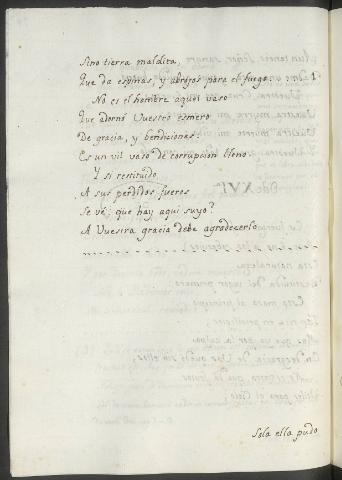 Sino tierra maldita,
Que da espinas, y abrojos para el fuego.
No es el hombre aquel vaso
Que adornó Vuestro esmero
De gracia, y bendiciones:
Es un vil vaso de corrupcion lleno.
Y si restituido
A sus perdidos fueros
Se vé; que hay aqui suyo?
A Vuestra gracia debe agradecerlo.
Sola ella pudo